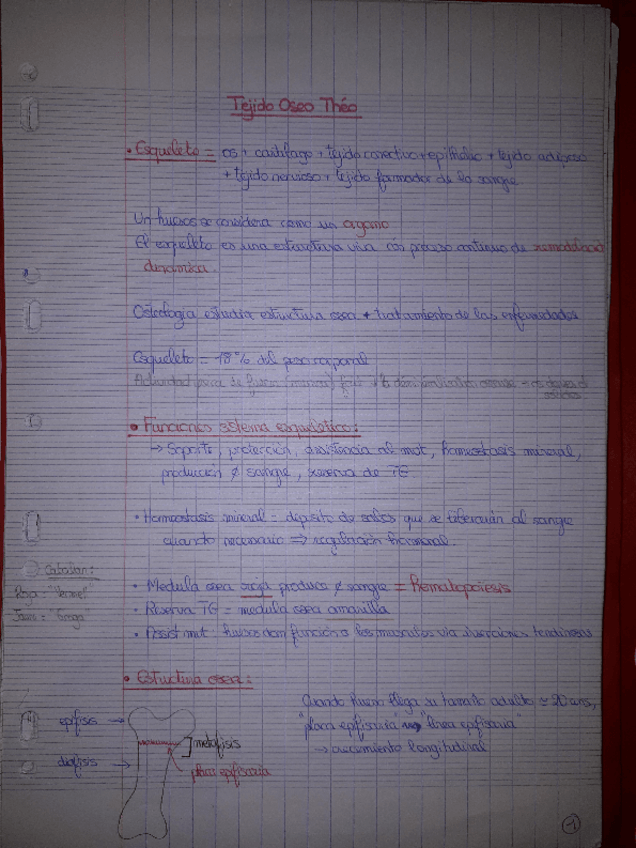 Tejido Oseo Théo
• Esqueleto = os + cartilago + tejido conectivo + epithelio + tejido adiposo
+ tejido nervioso + tejido formador de la sangre
Un huesos se considera como un organo
El esqueleto es una estructura viva con proceso continuo de remodelacion
dinamica.
Osteologia estudia estructura osea + tratamiento de las enfermedades
Esqueleto = 18% del peso corporal
• Funciones sistema esqueletico :
→ Soporte, proteccion, assistencia al mot, homeostasis mineral,
produccion ¢ sangre, reserva de TG
• Homeostasis mineral = deposito de sales que se liberarán al sangre
quando necessario ⇒ regulación hormonal.
Catalan :
Roja : "Vermell"
Jaune : "Groga"
• Medula osea roja produce ¢ sangre = Hematopoiesis
• Reserva TG = medula osea amarilla
• Assist mot : huesos dan función a los musculos via inserciones tendinosas
• Estructura osea :
Quando hueso llega su tamaño adulto ≈ 20 ans,
"placa epifisaria" → "linea epifisaria"
→ crecimiento longitudinal
epifisis
metafisis
diafisis
placa epifisaria
-1